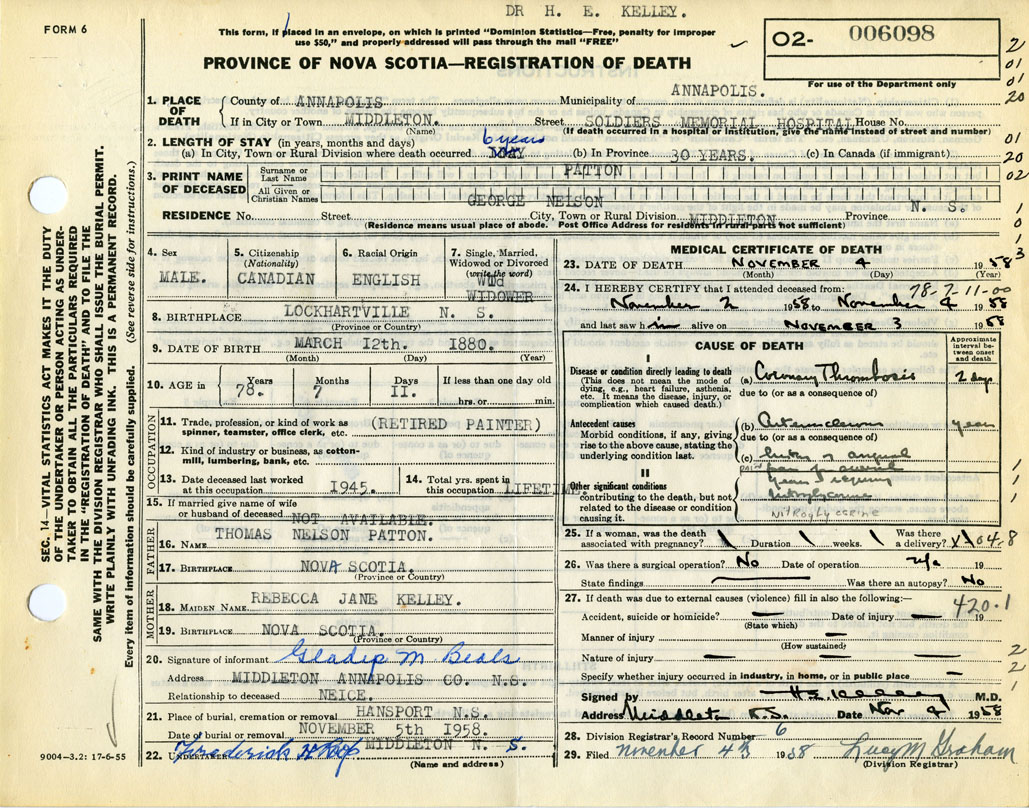 DR H. E. KELLEY.
FORM 6
This form, if placed in an envelope, on which is printed "Dominion Statistics—Free, penalty for improper
use $50," and properly addressed will pass through the mail "FREE"
PROVINCE OF NOVA SCOTIA—REGISTRATION OF DEATH
O2- 006098
For use of the Department only
2
01
01
20
01
20
02
1
0
1
3
1. PLACE OF DEATH
County of ANNAPOLIS Municipality of ANNAPOLIS.
If in City or Town MIDDLETON. Street SOLDIERS MEMORIAL HOSPITAL House No.
(Name) (If death occurred in a hospital or institution, give the name instead of street and number)
2. LENGTH OF STAY (in years, months and days)
(a) In City, Town or Rural Division where death occurred 6 years (b) In Province 30 YEARS. (c) In Canada (if immigrant)
3. PRINT NAME OF DECEASED
Surname or Last Name PATTON
All Given or Christian Names GEORGE NELSON
RESIDENCE No. Street City, Town or Rural Division MIDDLETON Province N. S.
(Residence means usual place of abode. Post Office Address for residents in rural parts not sufficient)
4. Sex
MALE.
5. Citizenship
(Nationality)
CANADIAN
6. Racial Origin
ENGLISH
7. Single, Married,
Widowed or Divorced
(write the word)
WIDOWER
8. BIRTHPLACE LOCKHARTVILLE N. S.
(Province or Country)
9. DATE OF BIRTH MARCH 12th. 1880.
(Month) (Day) (Year)
10. AGE in Years 78. Months 7 Days II. If less than one day old
hrs. or min.
OCCUPATION
11. Trade, profession, or kind of work as
spinner, teamster, office clerk, etc. (RETIRED PAINTER)
12. Kind of industry or business, as cotton-
mill, lumbering, bank, etc.
13. Date deceased last worked
at this occupation 1945.
14. Total yrs. spent in
this occupation LIFETIME
15. If married give name of wife
or husband of deceased NOT AVAILABLE.
FATHER
16. NAME THOMAS NELSON PATTON.
17. BIRTHPLACE NOVA SCOTIA.
(Province or Country)
MOTHER
18. MAIDEN NAME REBECCA JANE KELLEY.
19. BIRTHPLACE NOVA SCOTIA.
(Province or Country)
20. Signature of informant M Beals
Address MIDDLETON ANNAPOLIS CO. N.S.
Relationship to deceased NEICE.
21. Place of burial, cremation or removal HANSPORT N.S.
Date of burial or removal NOVEMBER 5th 1958.
22. UNDERTAKER Frederick MIDDLETON N. S.
(Name and address)
9004—3.2: 17-6-55
MEDICAL CERTIFICATE OF DEATH
23. DATE OF DEATH November 4 1958
(Month) (Day) (Year)
24. I HEREBY CERTIFY that I attended deceased from: 78-7-11-00
November 2 1958 to November 4 1958
and last saw him alive on November 3 1958
CAUSE OF DEATH
Approximate
interval be-
tween onset
and death
I
Disease or condition directly leading to death
(This does not mean the mode of
dying, e.g., heart failure, asthenia,
etc. It means the disease, injury, or
complication which caused death.)
(a) Coronary Thrombosis 2 days
due to (or as a consequence of)
Antecedent causes
Morbid conditions, if any, giving
rise to the above cause, stating the
underlying condition last.
(b) Arteriosclerosis years
due to (or as a consequence of)
(c) history of anginal
pain for several
years requiring
nitroglycerine
NITROGLYCERINE
II
Other significant conditions
contributing to the death, but not
related to the disease or condition
causing it.
1
1
1
25. If a woman, was the death
associated with pregnancy? Duration weeks. Was there
a delivery? 04.8
26. Was there a surgical operation? No Date of operation n/a 19
State findings Was there an autopsy? No
27. If death was due to external causes (violence) fill in also the following:— 420.1
Accident, suicide or homicide? Date of injury 19
(State which)
Manner of injury
(How sustained)
Nature of injury
Specify whether injury occurred in industry, in home, or in public place
2
2
1
Signed by H.E. Kelley M.D.
Address Middleton N.S. Date Nov 4 1958
28. Division Registrar's Record Number 6
29. Filed November 4 1958 Lucy M Graham
(Division Registrar)
SEC. 14—VITAL STATISTICS ACT MAKES IT THE DUTY
OF THE UNDERTAKER OR PERSON ACTING AS UNDER-
TAKER TO OBTAIN ALL THE PARTICULARS REQUIRED
IN THE "REGISTRATION OF DEATH" AND TO FILE THE
SAME WITH THE DIVISION REGISTRAR WHO SHALL ISSUE THE BURIAL PERMIT.
WRITE PLAINLY WITH UNFADING INK. THIS IS A PERMANENT RECORD.
Every item of information should be carefully supplied. (See reverse side for instructions.)